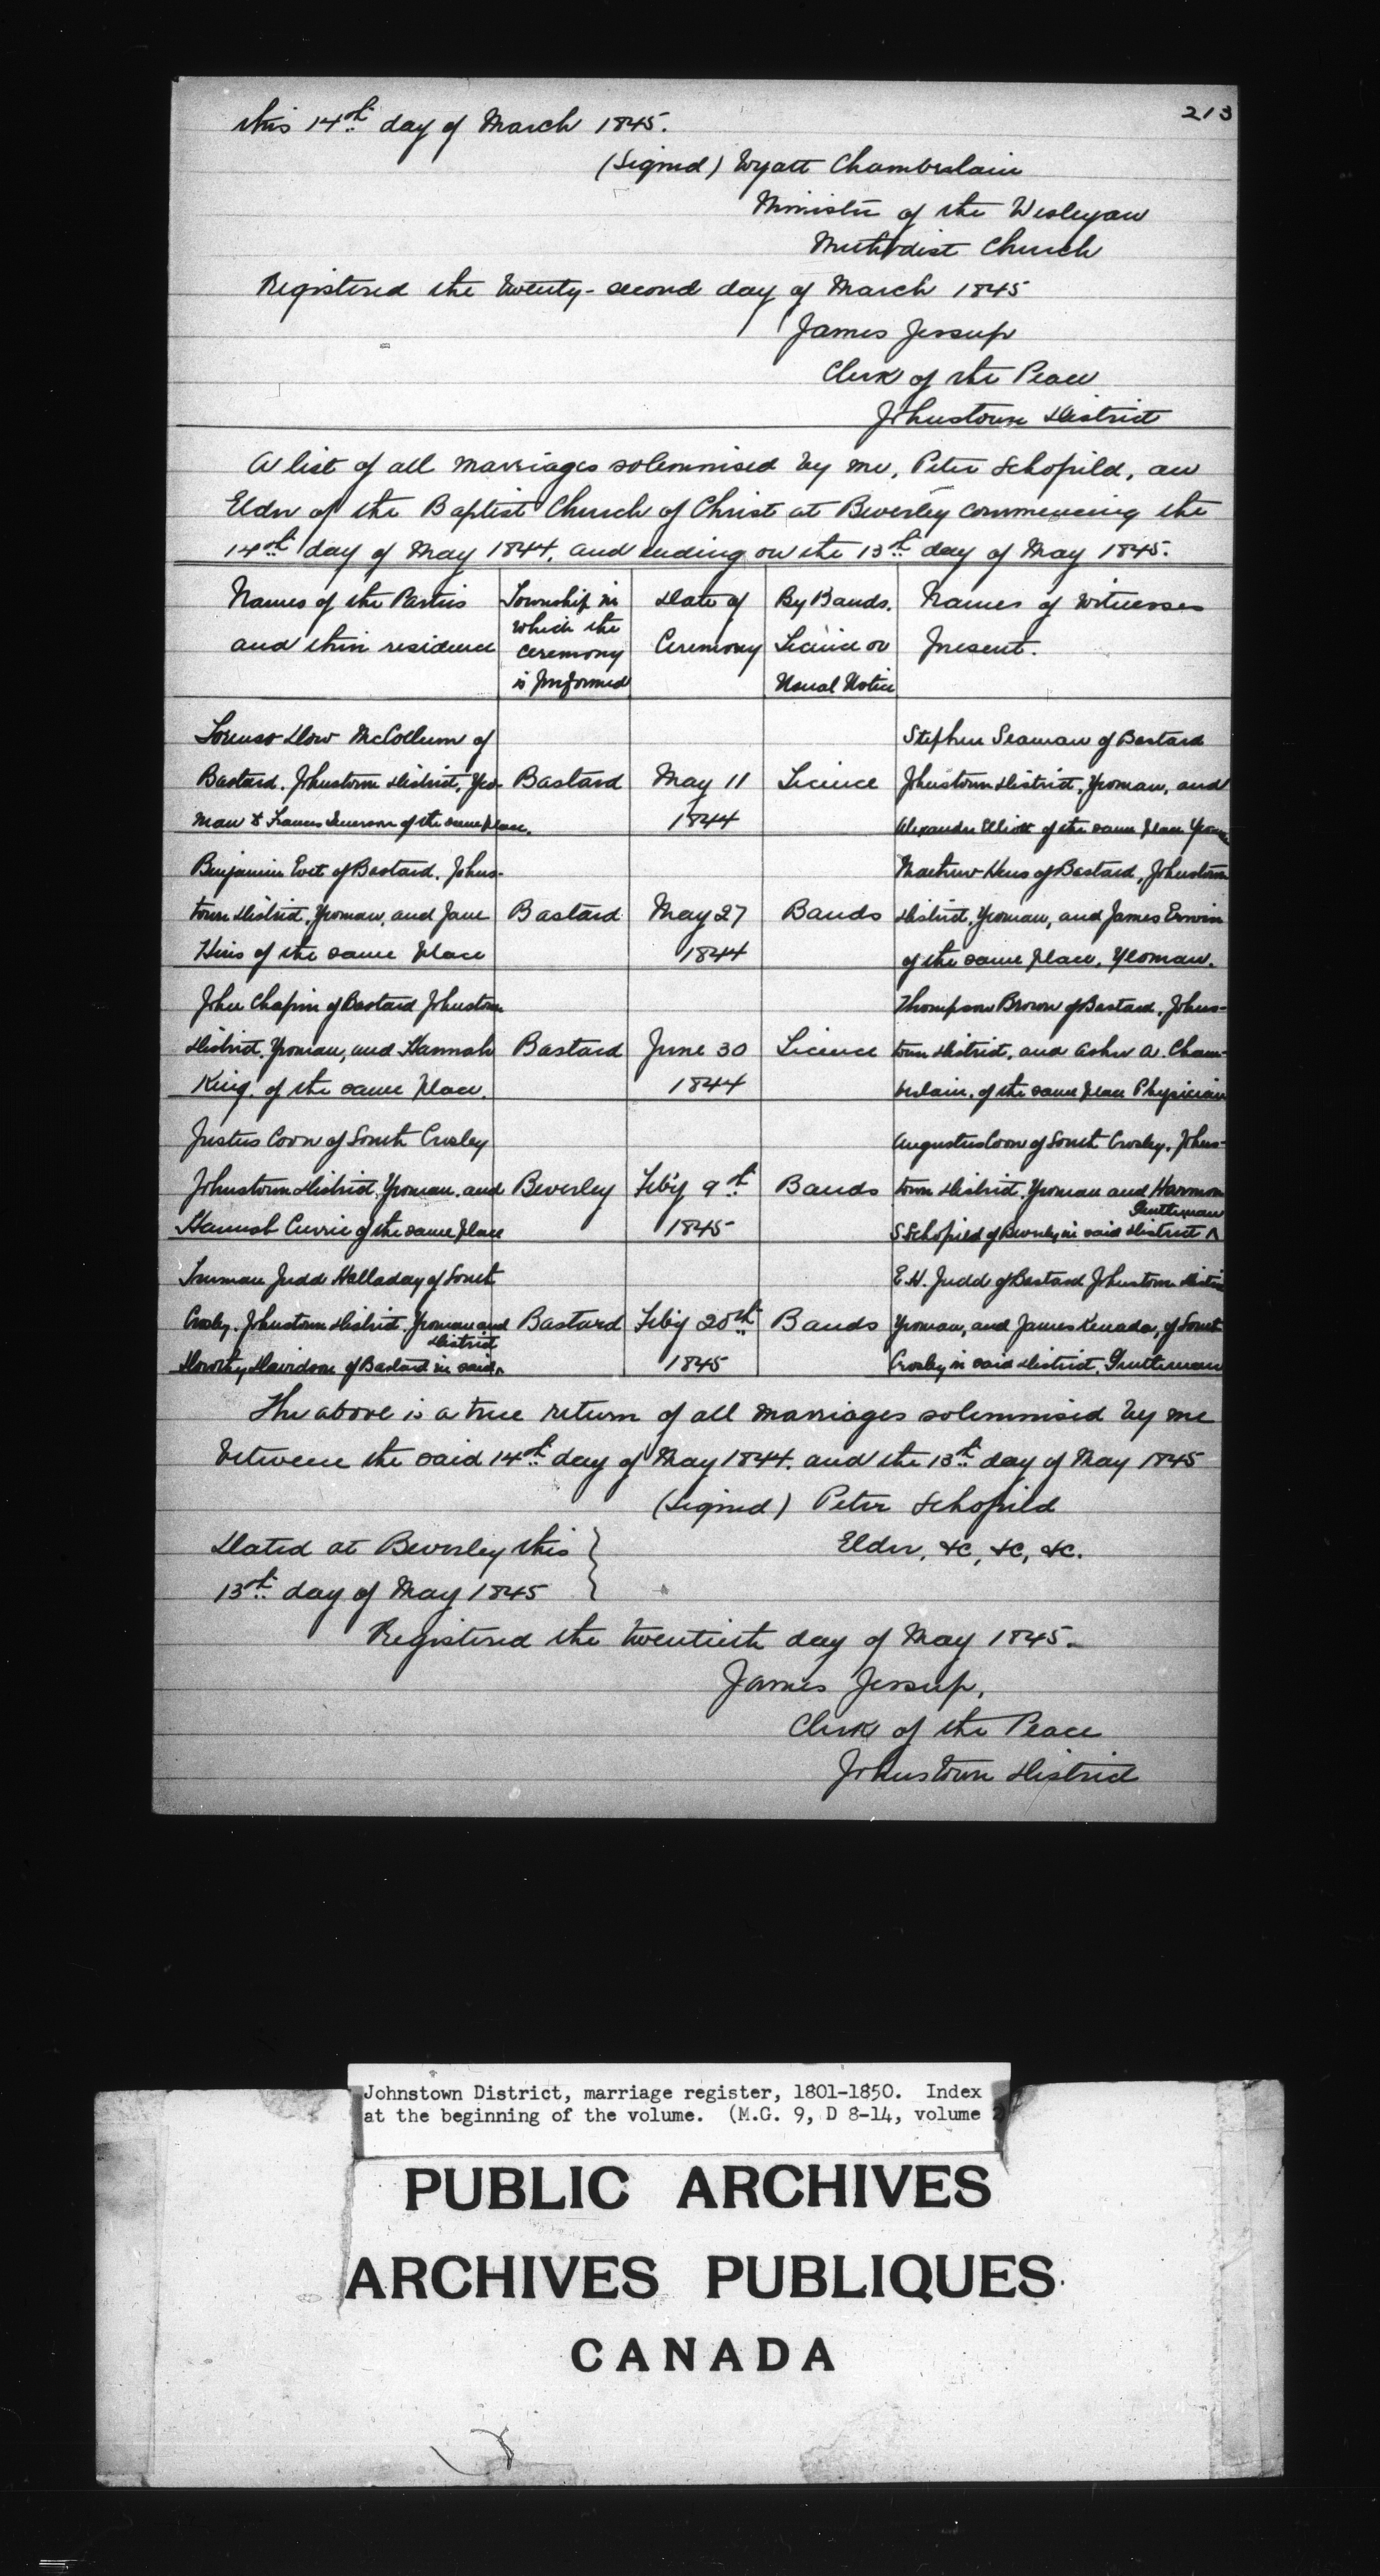 213
this 14th day of March 1845.
(Signed) Wyatt Chamberlain
Minister of the Wesleyan
Methodist Church
Registered the twenty-second day of March 1845
James Jessup
Clerk of the Peace
Johnstown District
A list of all marriages solemnised by me, Peter Schofield, an
Elder of the Baptist Church of Christ at Beverley commencing the
14th day of May 1844, and ending on the 13th day of May 1845.
Names of the Parties and their residence
Township in which the ceremony is performed
Date of Ceremony
By Banns, Licence or Usual Notice
Names of Witnesses Present.
Lorenso Dow McCollum of
Bastard, Johnstown District, Yeo-
man & Frances of the same place.
Bastard
May 11
1844
Licence
Stephen Seaman of Bastard
Johnstown District, Yeoman, and
Alexander Elliott of the same place Yeoman
Benjamin of Bastard, Johns-
town District, Yeoman, and Jane
of the same place
Bastard
May 27
1844
Banns
Mathew of Bastard, Johnstown
District, Yeoman, and James Erwin
of the same place, Yeoman.
John Chapin of Bastard Johnstown
District, Yeoman, and Hannah
King, of the same place.
Bastard
June 30
1844
Licence
Thompson Brown of Bastard, Johns-
town District, and Asher A. Cham-
berlain, of the same place Physician
Justus Coon of South Crosby
Johnstown District, Yeoman, and
Hannah Currie of the same place
Beverley
Feb'y 9th
1845
Banns
Augustus Coon of South Crosby, Johns-
town District, Yeoman and Harmon
S Schofield of Beverley in said District Gentleman
Truman Judd Halladay of South
Crosby, Johnstown District, Yeoman and
Dorothy Davidson of Bastard in said District
Bastard
Feb'y 25th
1845
Banns
E.H. Judd of Bastard Johnstown District
Yeoman, and James Kenada, of South
Crosby in said District, Gentleman
The above is a true return of all marriages solemnised by me
between the said 14th day of May 1844, and the 13th day of May 1845
(Signed) Peter Schofield
Elder, &c, &c, &c.
Dated at Beverley this
13th day of May 1845
Registered the twentieth day of May 1845.
James Jessup,
Clerk of the Peace
Johnstown District
Johnstown District, marriage register, 1801-1850. Index
at the beginning of the volume. (M.G. 9, D 8-14, volume 2
PUBLIC ARCHIVES
ARCHIVES PUBLIQUES
CANADA